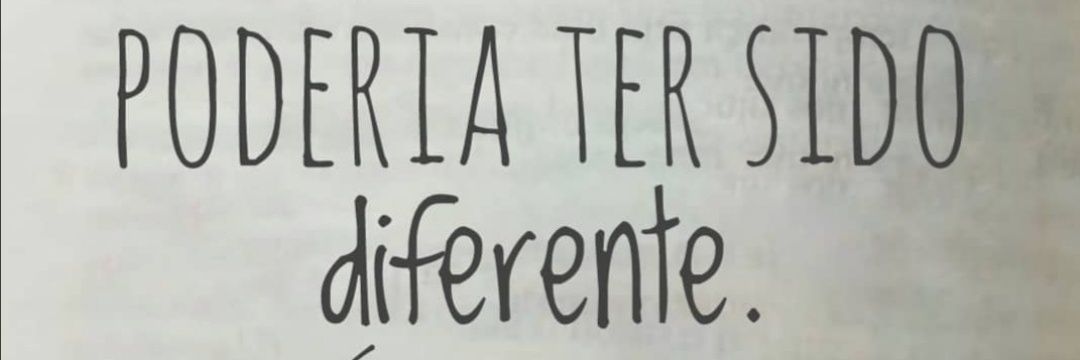 PODERIA TER SIDO
diferente.